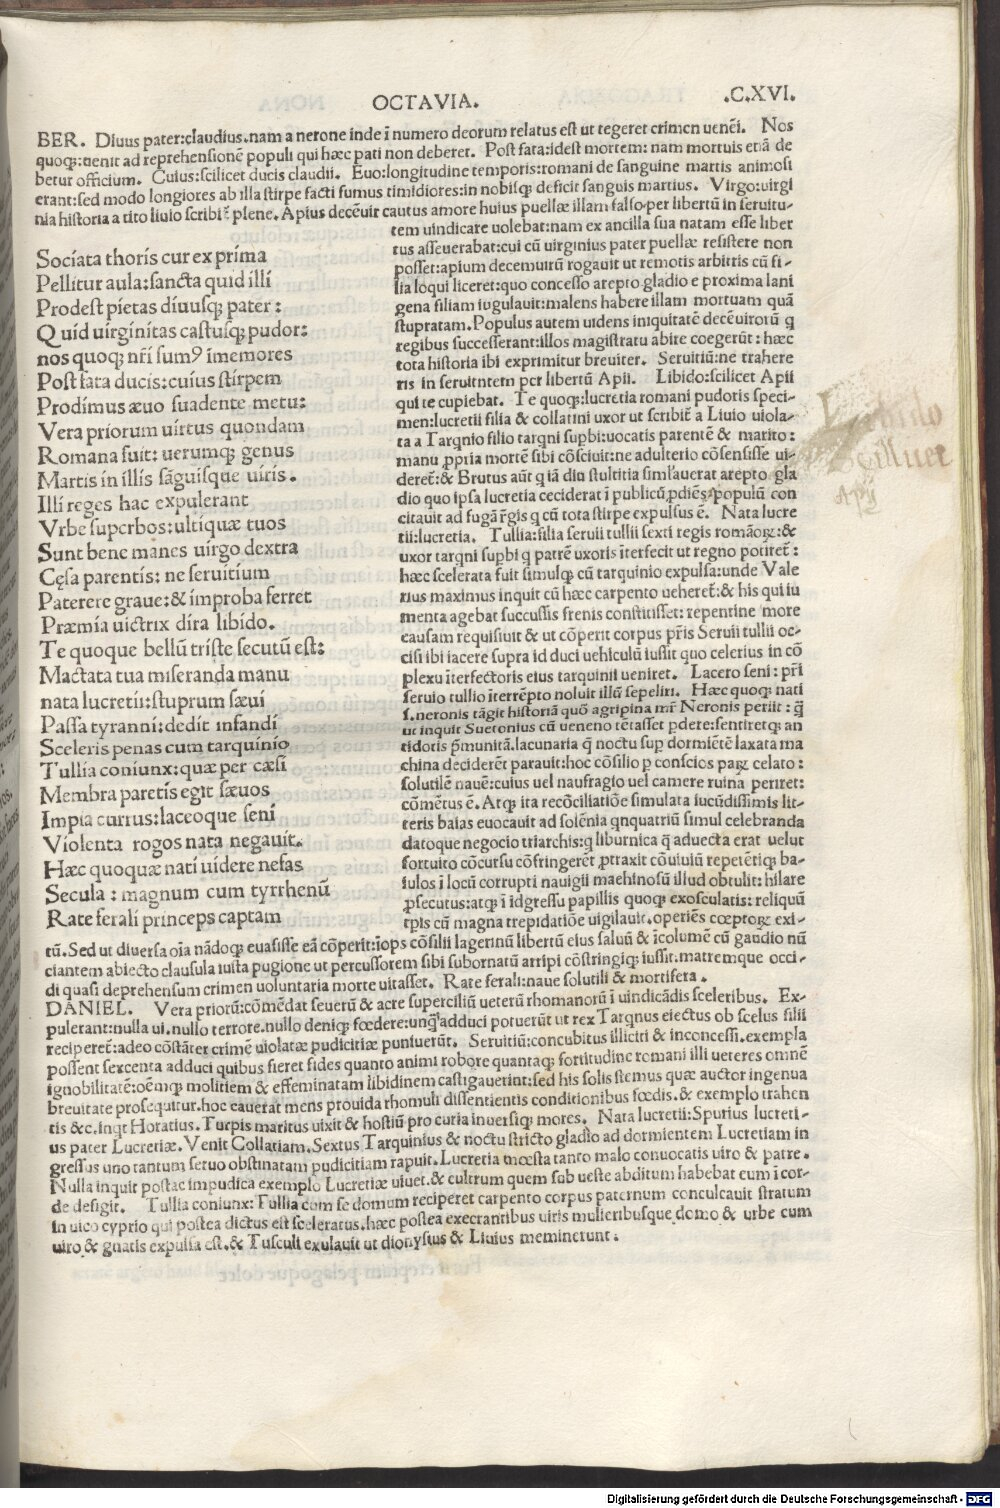 OCTAVIA. .C.XVI.
BER. Diuus pater:claudius.nam a nerone inde ī numero deorum relatus est ut tegeret crimen uenēi. Nos
quoqꝫ:uenit ad reprehensionē populi qui hæc pati non deberet. Post fata:idest mortem:nam mortuis etiā de
betur officium. Cuius:scilicet ducis claudii. Euo:longitudine temporis:romani de sanguine martis animosi
erant:sed modo longiores ab illa stirpe facti sumus timidiores:in nobisqꝫ deficit sanguis martius. Virgo:uirgi
nia historia a tito liuio scribit̄ plene.Apius decēuir cautus amore huius puellæ illam falso.per libertū in seruitu-
tem uindicare uolebat:nam ex ancilla sua natam esse liber
tus asseuerabat:cui cū uirginius pater puellæ resistere non
posset:apium decemuirū rogauit ut remotis arbitris cū fi-
lia loqui liceret:quo concesso arepto gladio e proxima lani
gena filiam iugulauit:malens habere illam mortuam quā
stupratam.Populus autem uidens iniquitatē decēuirorū q
regibus successerant:illos magistratu abire coegerūt:hæc
tota historia ibi exprimitur breuiter. Seruitiū:ne trahere
ris in seruitntem per libertū Apii. Libido:scilicet Apii
qui te cupiebat. Te quoqꝫ:lucretia romani pudoris speci-
men:lucretii filia & collatini uxor ut scribit̄ a Liuio uiola-
ta a Tarqnio filio tarqni supbi:uocatis parentē & marito:
manu ꝓpria mortē sibi cōsciuit:ne adulterio cōsensisse ui-
deret̄:& Brutus aūt q iā diu stultitia simlauerat arepto gla
dio quo ipsa lucretia ceciderat ī publicū.pdiēs populū con
citauit ad fugā rḡis q cū tota stirpe expulsus ē. Nata lucre
tii:lucretia. Tullia:filia seruii tullii sexti regis romāoꝝ:&
uxor tarqni supbi q patrē uxoris īterfecit ut regno potiret̄:
hæc scelerata fuit simulqꝫ cū tarquinio expulsa:unde Vale
rius maximus inquit cū hæc carpento ueheret̄:& his qui iu
menta agebat succussis frenis constitisset:repentine more
causam requisiuit & ut cōperit corpus pr̄is Seruii tullii oc-
cisi ibi iacere supra id duci uehiculū iussit quo celerius in cō
plexu īterfectoris eius tarquinii ueniret. Lacero seni:pr̄i
seruio tullio īterrēpto noluit illū sepeliri. Hæc quoqꝫ nati
s.neronis tāgit historiā quō agripina mr̄ Neronis periit:q̄
ut inquit Suetonius cū ueneno tētasset pdere:sentiretqꝫ an
tidotis p̄munitā.lacunaria q̄ noctu sup dormiētē laxata ma
china deciderēt parauit:hoc cōsilio p conscios paꝝ celato:
solutilē nauē:cuius uel naufragio uel camere ruina periret:
cōmētus ē.Atqꝫ ita recōciliatiōe simulata iucūdissimis lit-
teris baias euocauit ad solēnia qnquatriū simul celebranda
datoque negocio triarchis:q liburnica q̄ aduecta erat uelut
fortuito cōcursu cōfringerēt ꝓtraxit cōuiuiū repetētiqꝫ ba-
iulos ī locū corrupti nauigii machinosū illud obtulit:hilare
ꝓsecutus:atqꝫ ī idgressu papillis quoqꝫ exosculatis:reliquū
tp̄is cū magna trepidatiōe uigilauit.operiēs cœptoꝝ exi-
Sociata thoris cur ex prima
Pellitur aula:sancta quid illi
Prodest pietas diuusqꝫ pater:
Quid uirginitas castusqꝫ pudor:
nos quoqꝫ nr̄i sumꝰ īmemores
Post fata ducis:cuius stirpem
Prodimus æuo suadente metu:
Vera priorum uirtus quondam
Romana fuit:uerumqꝫ genus
Martis in illis sāguisque uiris.
Illi reges hac expulerant
Vrbe superbos:ultiquæ tuos
Sunt bene manes uirgo dextra
Cęsa parentis:ne seruitium
Paterere graue:& improba ferret
Præmia uictrix dira libido.
Te quoque bellū triste secutū est:
Mactata tua miseranda manu
nata lucretii:stuprum sæui
Passa tyranni:dedit infandi
Sceleris penas cum tarquinio
Tullia coniunx:quæ per cæsi
Membra parētis egit sæuos
Impia currus:laceoque seni
Violenta rogos nata negauit.
Hæc quoquæ nati uidere nefas
Secula:magnum cum tyrrhenū
Rate ferali princeps captam
tū.Sed ut diuersa oīa nādoqꝫ euasisse eā cōperit:īops cōsilii lagerinū libertū eius saluū & īcolumē cū gaudio nū
ciantem abiecto clausula iusta pugione ut percussorem sibi subornatū arripi cōstringiqꝫ iussit.matremque occi-
di quasi deprehensum crimen uoluntaria morte uitasset. Rate ferali:naue solutili & mortifera.
DANIEL. Vera priorū:cōmēdat seuerū & acre superciliū ueterū rhomanorū ī uindicādis sceleribus. Ex-
pulerant:nulla ui.nullo terrore.nullo deniqꝫ fœdere:unq̄ adduci potuerūt ut rex Tarqnus eiectus ob scelus filii
reciperet̄:adeo cōstāter crimē uiolatæ pudicitiæ puniuerūt. Seruitiū:concubitus illiciti & inconcessi.exempla
possent sexcenta adduci quibus fieret fides quanto animi robore quantaqꝫ fortitudine romani illi ueteres omnē
ignobilitatē:oēmqꝫ molitiem & effeminatam libidinem castigauerint:sed his solis stemus quæ auctor ingenua
breuitate prosequitur.hoc cauerat mens prouida rhomuli dissentientis conditionibus fœdis.& exemplo trahen
tis &c.inqt Horatius.Turpis maritus uixit & hostiū pro curia inuersiqꝫ mores. Nata lucretii:Spurius lucreti-
us pater Lucretiæ.Venit Collatiam.Sextus Tarquinius & noctu stricto gladio ad dormientem Lucretiam in
gressus uno tantum seruo obstinatam pudicitiam rapuit.Lucretia mœsta tanto malo conuocatis uiro & patre.
Nulla inquit postac impudica exemplo Lucretiæ uiuet.& cultrum quem sub ueste abditum habebat eum ī cor-
de defigit. Tullia coniunx:Tullia cum se domum reciperet carpento corpus paternum conculcauit stratum
in uico cyprio qui postea dictus est sceleratus.hæc postea execrantibus uiris mulieribusque domo & urbe cum
uiro & gnatis expulsa est.& Tusculi exulauit ut dionysius & Liuius meminerunt:
Libido
Scilicet
Apii
Digitalisierung gefördert durch die Deutsche Forschungsgemeinschaft - DFG